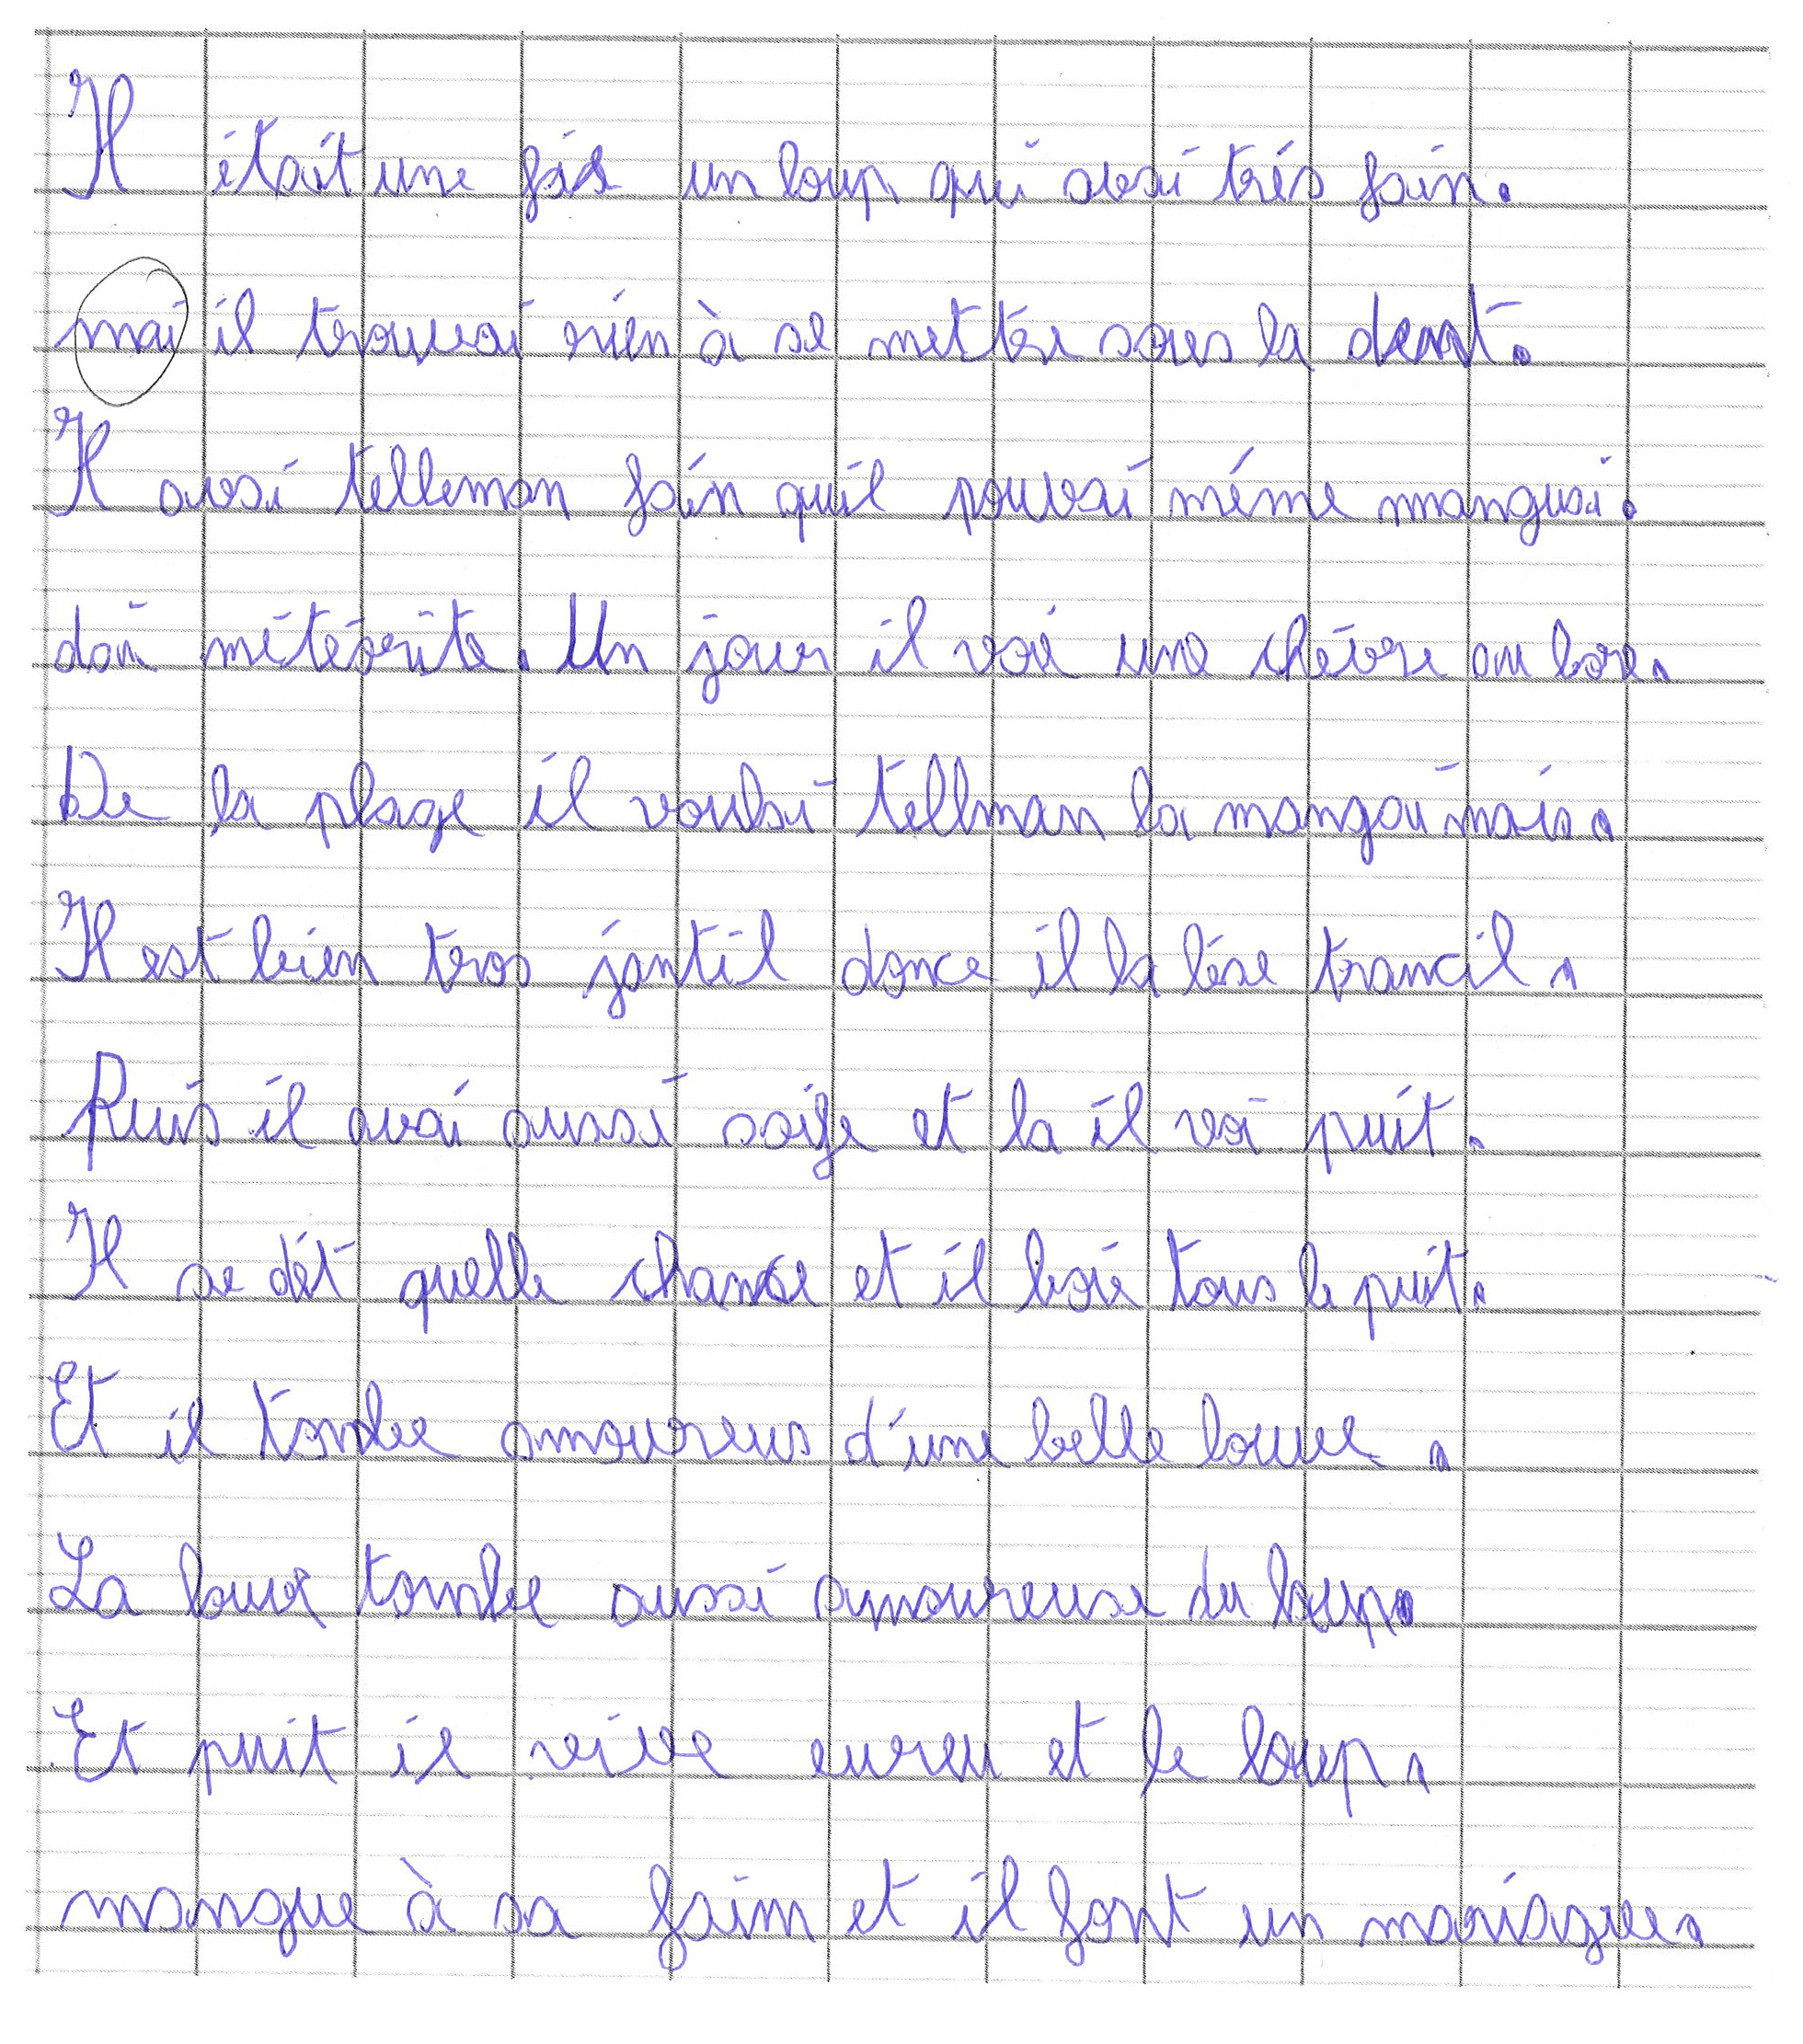 Il était une fois un loup qui avai trés fain.
mai il trouvai rien à se mettre sous la dent.
Il avai telleman fain quil pouvai méme manguai.
dai météorite. Un jour il voi une chévre au bore.
De la plage il voulai tellman la mangai mais.
Il est bien trop jantil donce il la lése trancil.
Puis il avai aussi soife et la il voi puit.
Il se dét quelle chance et il boie tous le puit.
Et il tombe amoureus d'une belle louve.
La louve tombe aussi amoureuse du loup.
Et puit il vive eureu et le loup.
mangue à sa faim et il font un mariague.